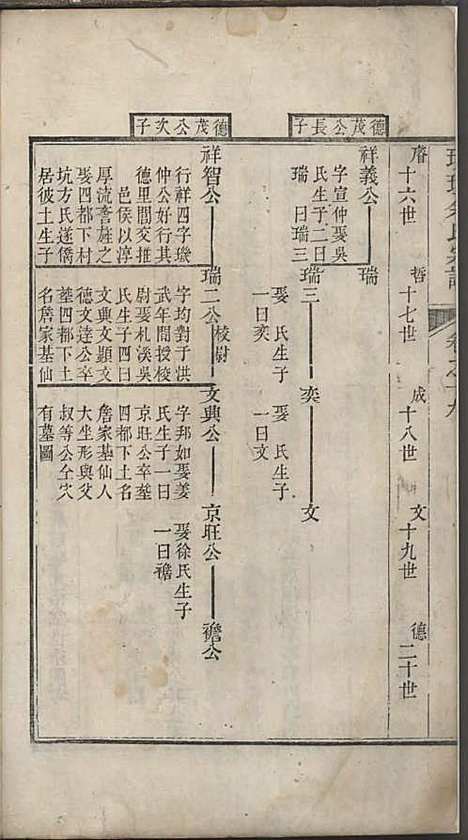 睿十六世
哲十七世
成十八世
文十九世
德二十世
德茂公長子
祥義公
瑞
字宣仲娶吳
氏生子二曰
瑞曰瑞三
瑞三
奕
文
娶 氏生子
一曰奕
娶 氏生子
一曰文
德茂公次子
祥智公
瑞二公校尉
文興公
京旺公
襜公
行祥四字璣
仲公好行其
德里閭交推
邑侯以淳
厚流耆旌之
娶四都下村
坑方氏遂僑
居彼土生子
字均對于洪
武年間授校
尉娶札溪吳
氏生子四曰
文興文顯文
德文達公卒
塟四都下土
名詹家墓仙
字邦如娶姜
氏生子一曰
京旺公卒塟
四都下土名
詹家墓仙人
大坐形與父
叔等公仝穴
有墓圖
娶徐氏生子
一曰襜